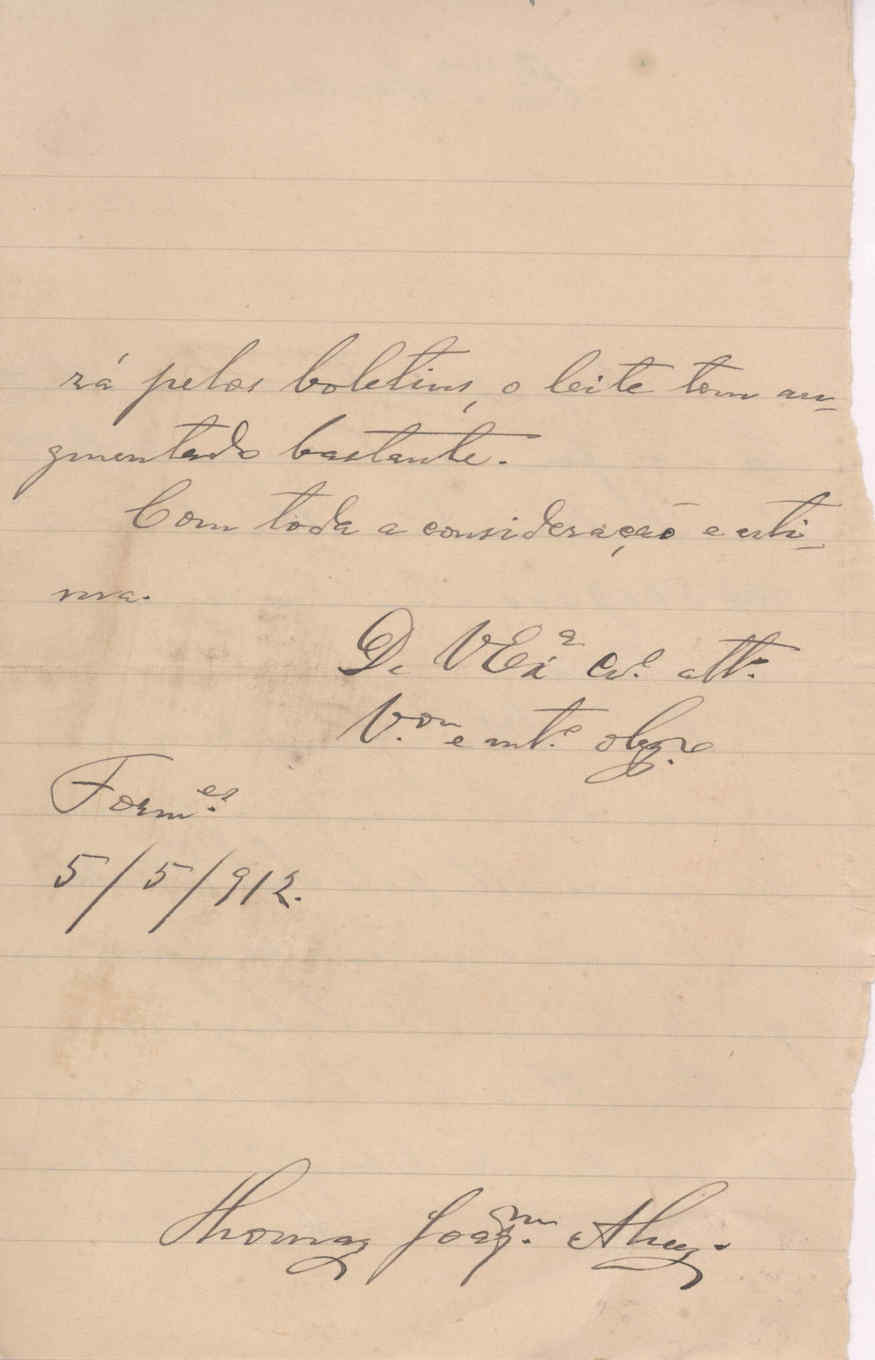 rá pelos boletins, o leite tem au-
gmentado bastante.
Com toda a consideração e esti-
ma.
De V Exª Cr.º att.º
V.ᵒʳ e mt.º obg.º
Form.ᵉˢ
5/5/912.
Thomaz Joaq.ᵐ Alvez.